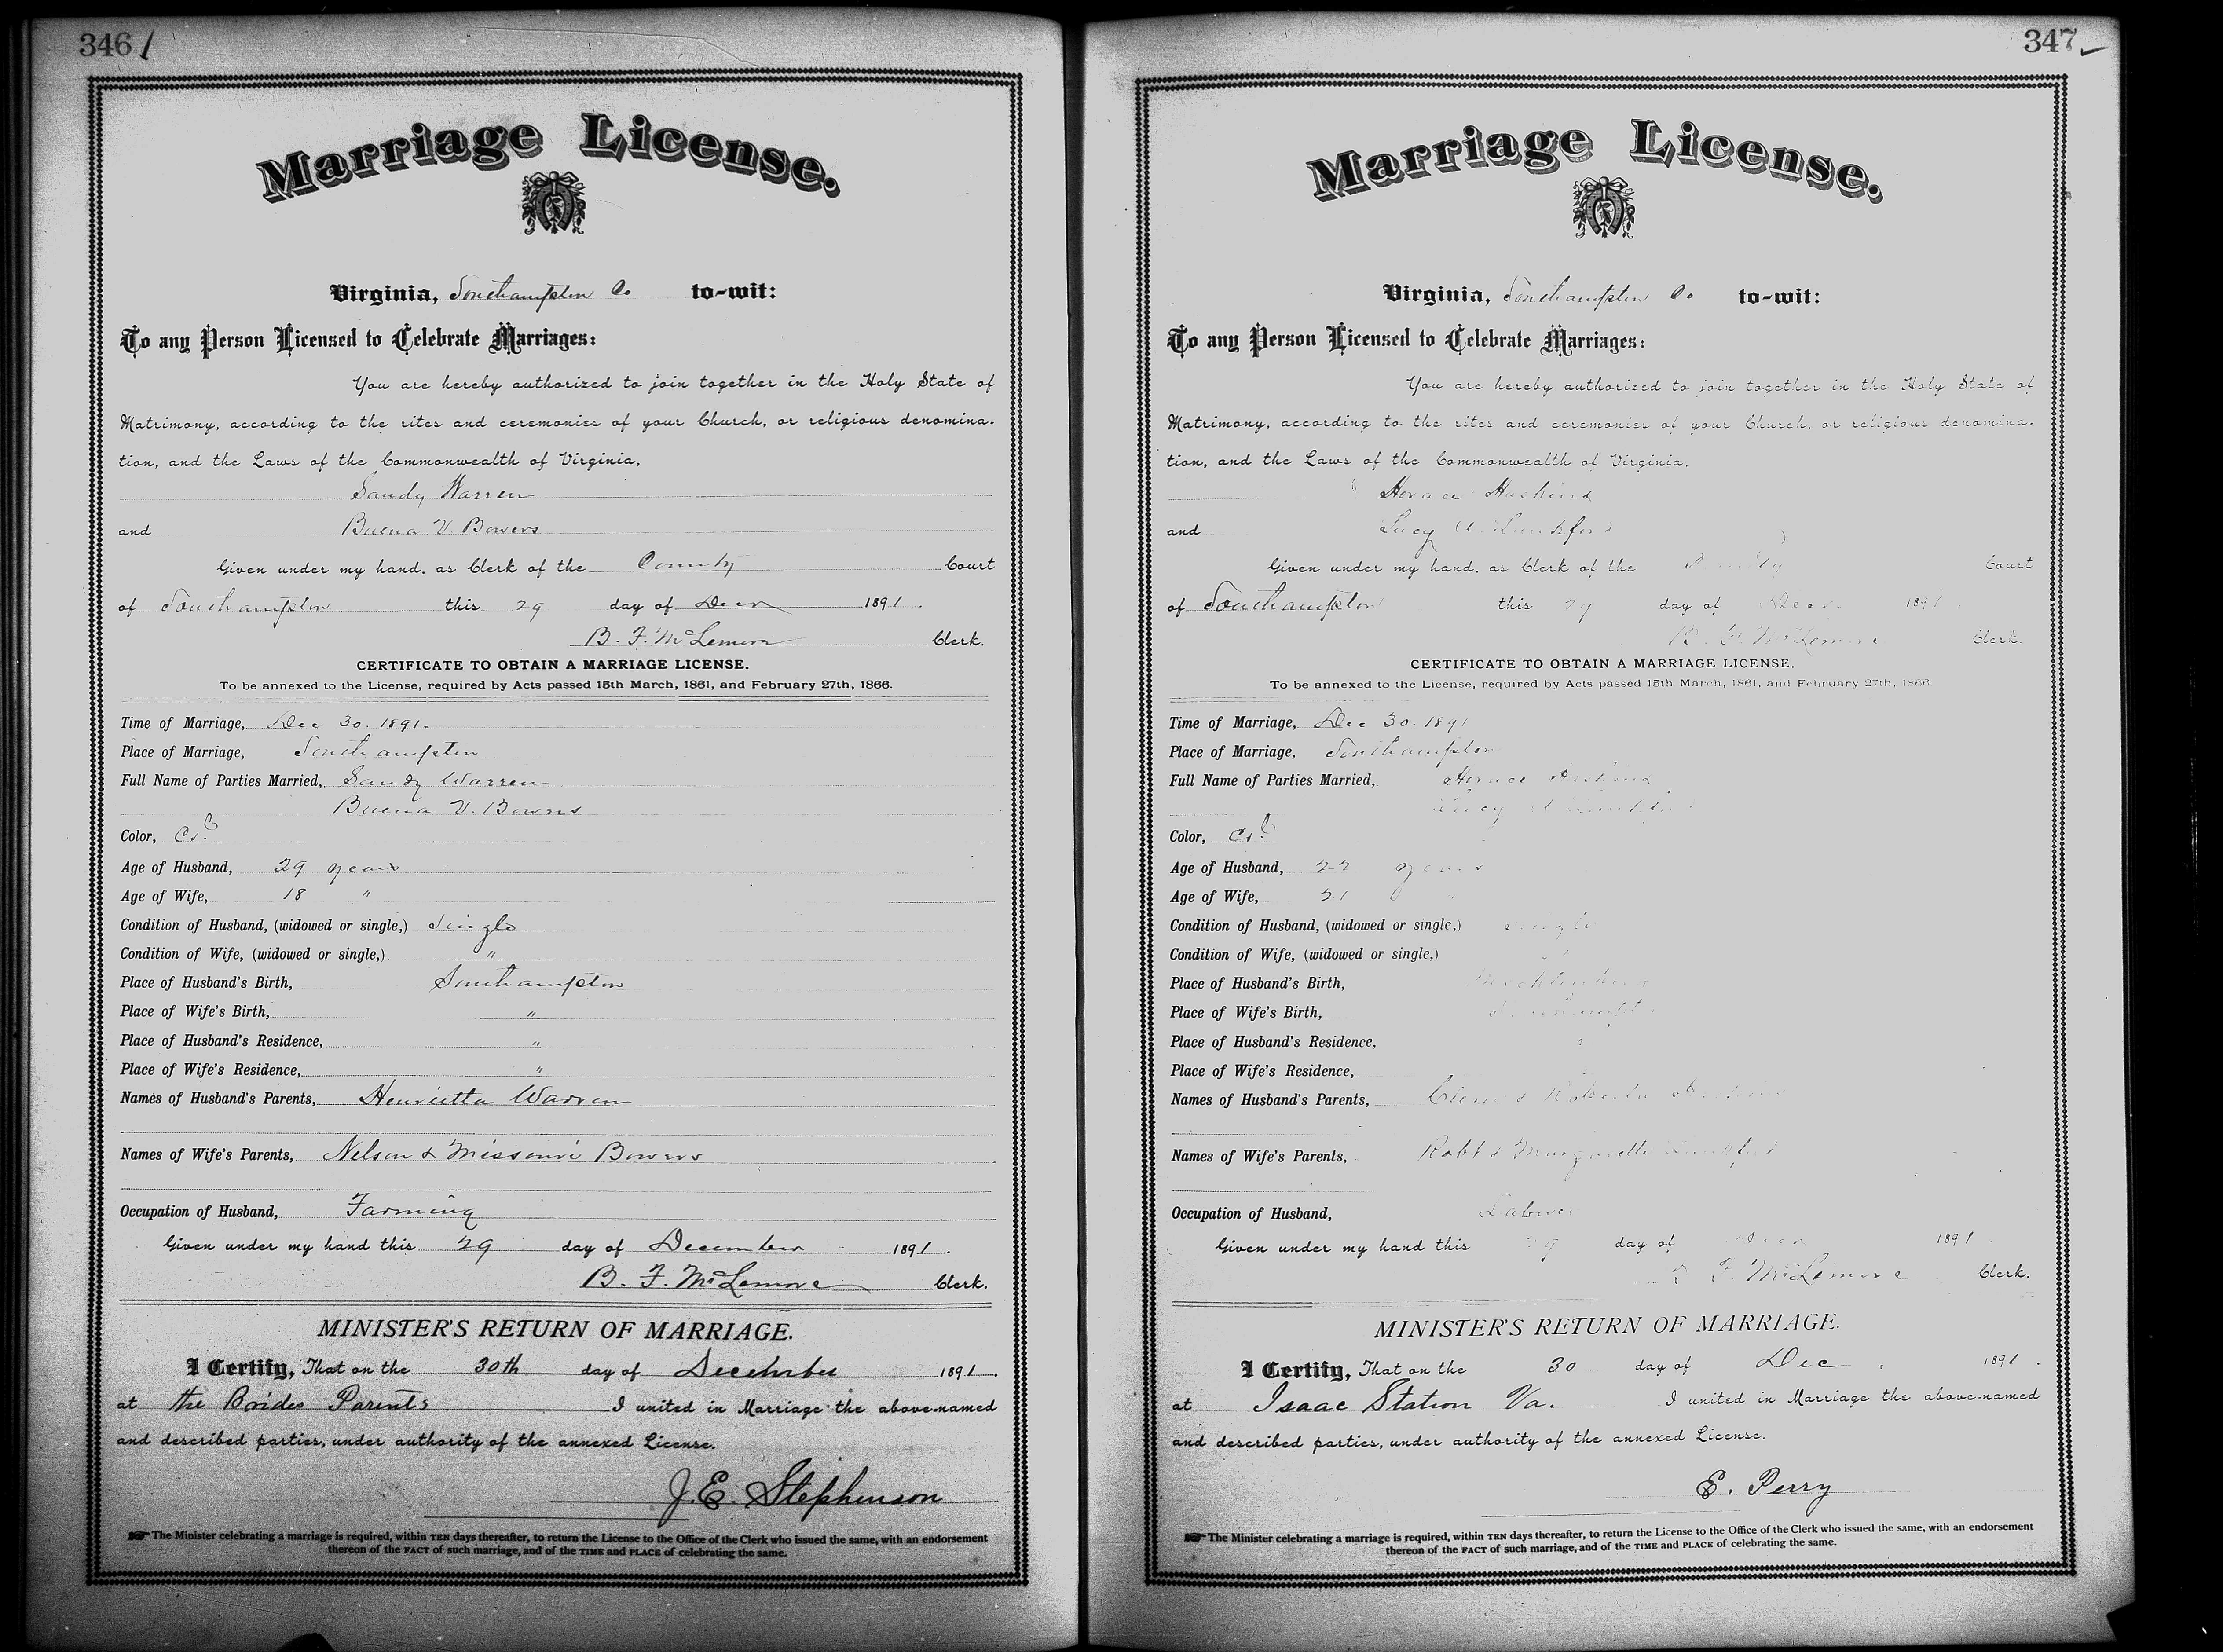 346
Marriage License.
Virginia, Southampton Co to-wit:
To any Person Licensed to Celebrate Marriages:
You are hereby authorized to join together in the Holy State of
Matrimony, according to the rites and ceremonies of your Church, or religious denomina-
tion, and the Laws of the Commonwealth of Virginia,
Sandy Warren
and Buena V. Bowers
Given under my hand, as Clerk of the County Court
of Southampton this 29 day of Decr 1891.
B. F. McLemore Clerk.
CERTIFICATE TO OBTAIN A MARRIAGE LICENSE.
To be annexed to the License, required by Acts passed 15th March, 1861, and February 27th, 1866.
Time of Marriage, Dec 30. 1891.
Place of Marriage, Southampton
Full Name of Parties Married, Sandy Warren
Buena V. Bowers
Color, Cold
Age of Husband, 29 years
Age of Wife, 18 "
Condition of Husband, (widowed or single,) Single
Condition of Wife, (widowed or single,) "
Place of Husband's Birth, Southampton
Place of Wife's Birth, "
Place of Husband's Residence, "
Place of Wife's Residence, "
Names of Husband's Parents, Henrietta Warren
Names of Wife's Parents, Nelson & Missouri Bowers
Occupation of Husband, Farming
Given under my hand this 29 day of December 1891.
B. F. McLemore Clerk.
MINISTER'S RETURN OF MARRIAGE.
I Certify, That on the 30th day of December 1891.
at the Brides Parents I united in Marriage the above-named
and described parties, under authority of the annexed License.
J. E. Stephenson
The Minister celebrating a marriage is required, within TEN days thereafter, to return the License to the Office of the Clerk who issued the same, with an endorsement
thereon of the FACT of such marriage, and of the TIME and PLACE of celebrating the same.
347
Marriage License.
Virginia, Southampton Co to-wit:
To any Person Licensed to Celebrate Marriages:
You are hereby authorized to join together in the Holy State of
Matrimony, according to the rites and ceremonies of your Church, or religious denomina-
tion, and the Laws of the Commonwealth of Virginia,
Horace Haskins
and Lucy A. Lankford
Given under my hand, as Clerk of the County Court
of Southampton this 29 day of Decr 1891
B. F. McLemore Clerk.
CERTIFICATE TO OBTAIN A MARRIAGE LICENSE.
To be annexed to the License, required by Acts passed 15th March, 1861, and February 27th, 1866
Time of Marriage, Dec 30. 1891
Place of Marriage, Southampton
Full Name of Parties Married, Horace Haskins
Lucy A Lankford
Color, Cold
Age of Husband, 22 years
Age of Wife, 21
Condition of Husband, (widowed or single,) Single
Condition of Wife, (widowed or single,)
Place of Husband's Birth, Mecklenburg
Place of Wife's Birth, Southampton
Place of Husband's Residence, "
Place of Wife's Residence,
Names of Husband's Parents, Clem & Roberta Haskins
Names of Wife's Parents, Robt & Margarette Lankford
Occupation of Husband, Labour
Given under my hand this 29 day of Decr 1891.
B. F. McLemore Clerk.
MINISTER'S RETURN OF MARRIAGE.
I Certify, That on the 30 day of Dec. 1891.
at Isaac Station Va. I united in Marriage the above-named
and described parties, under authority of the annexed License.
E. Perry
The Minister celebrating a marriage is required, within TEN days thereafter, to return the License to the Office of the Clerk who issued the same, with an endorsement
thereon of the FACT of such marriage, and of the TIME and PLACE of celebrating the same.